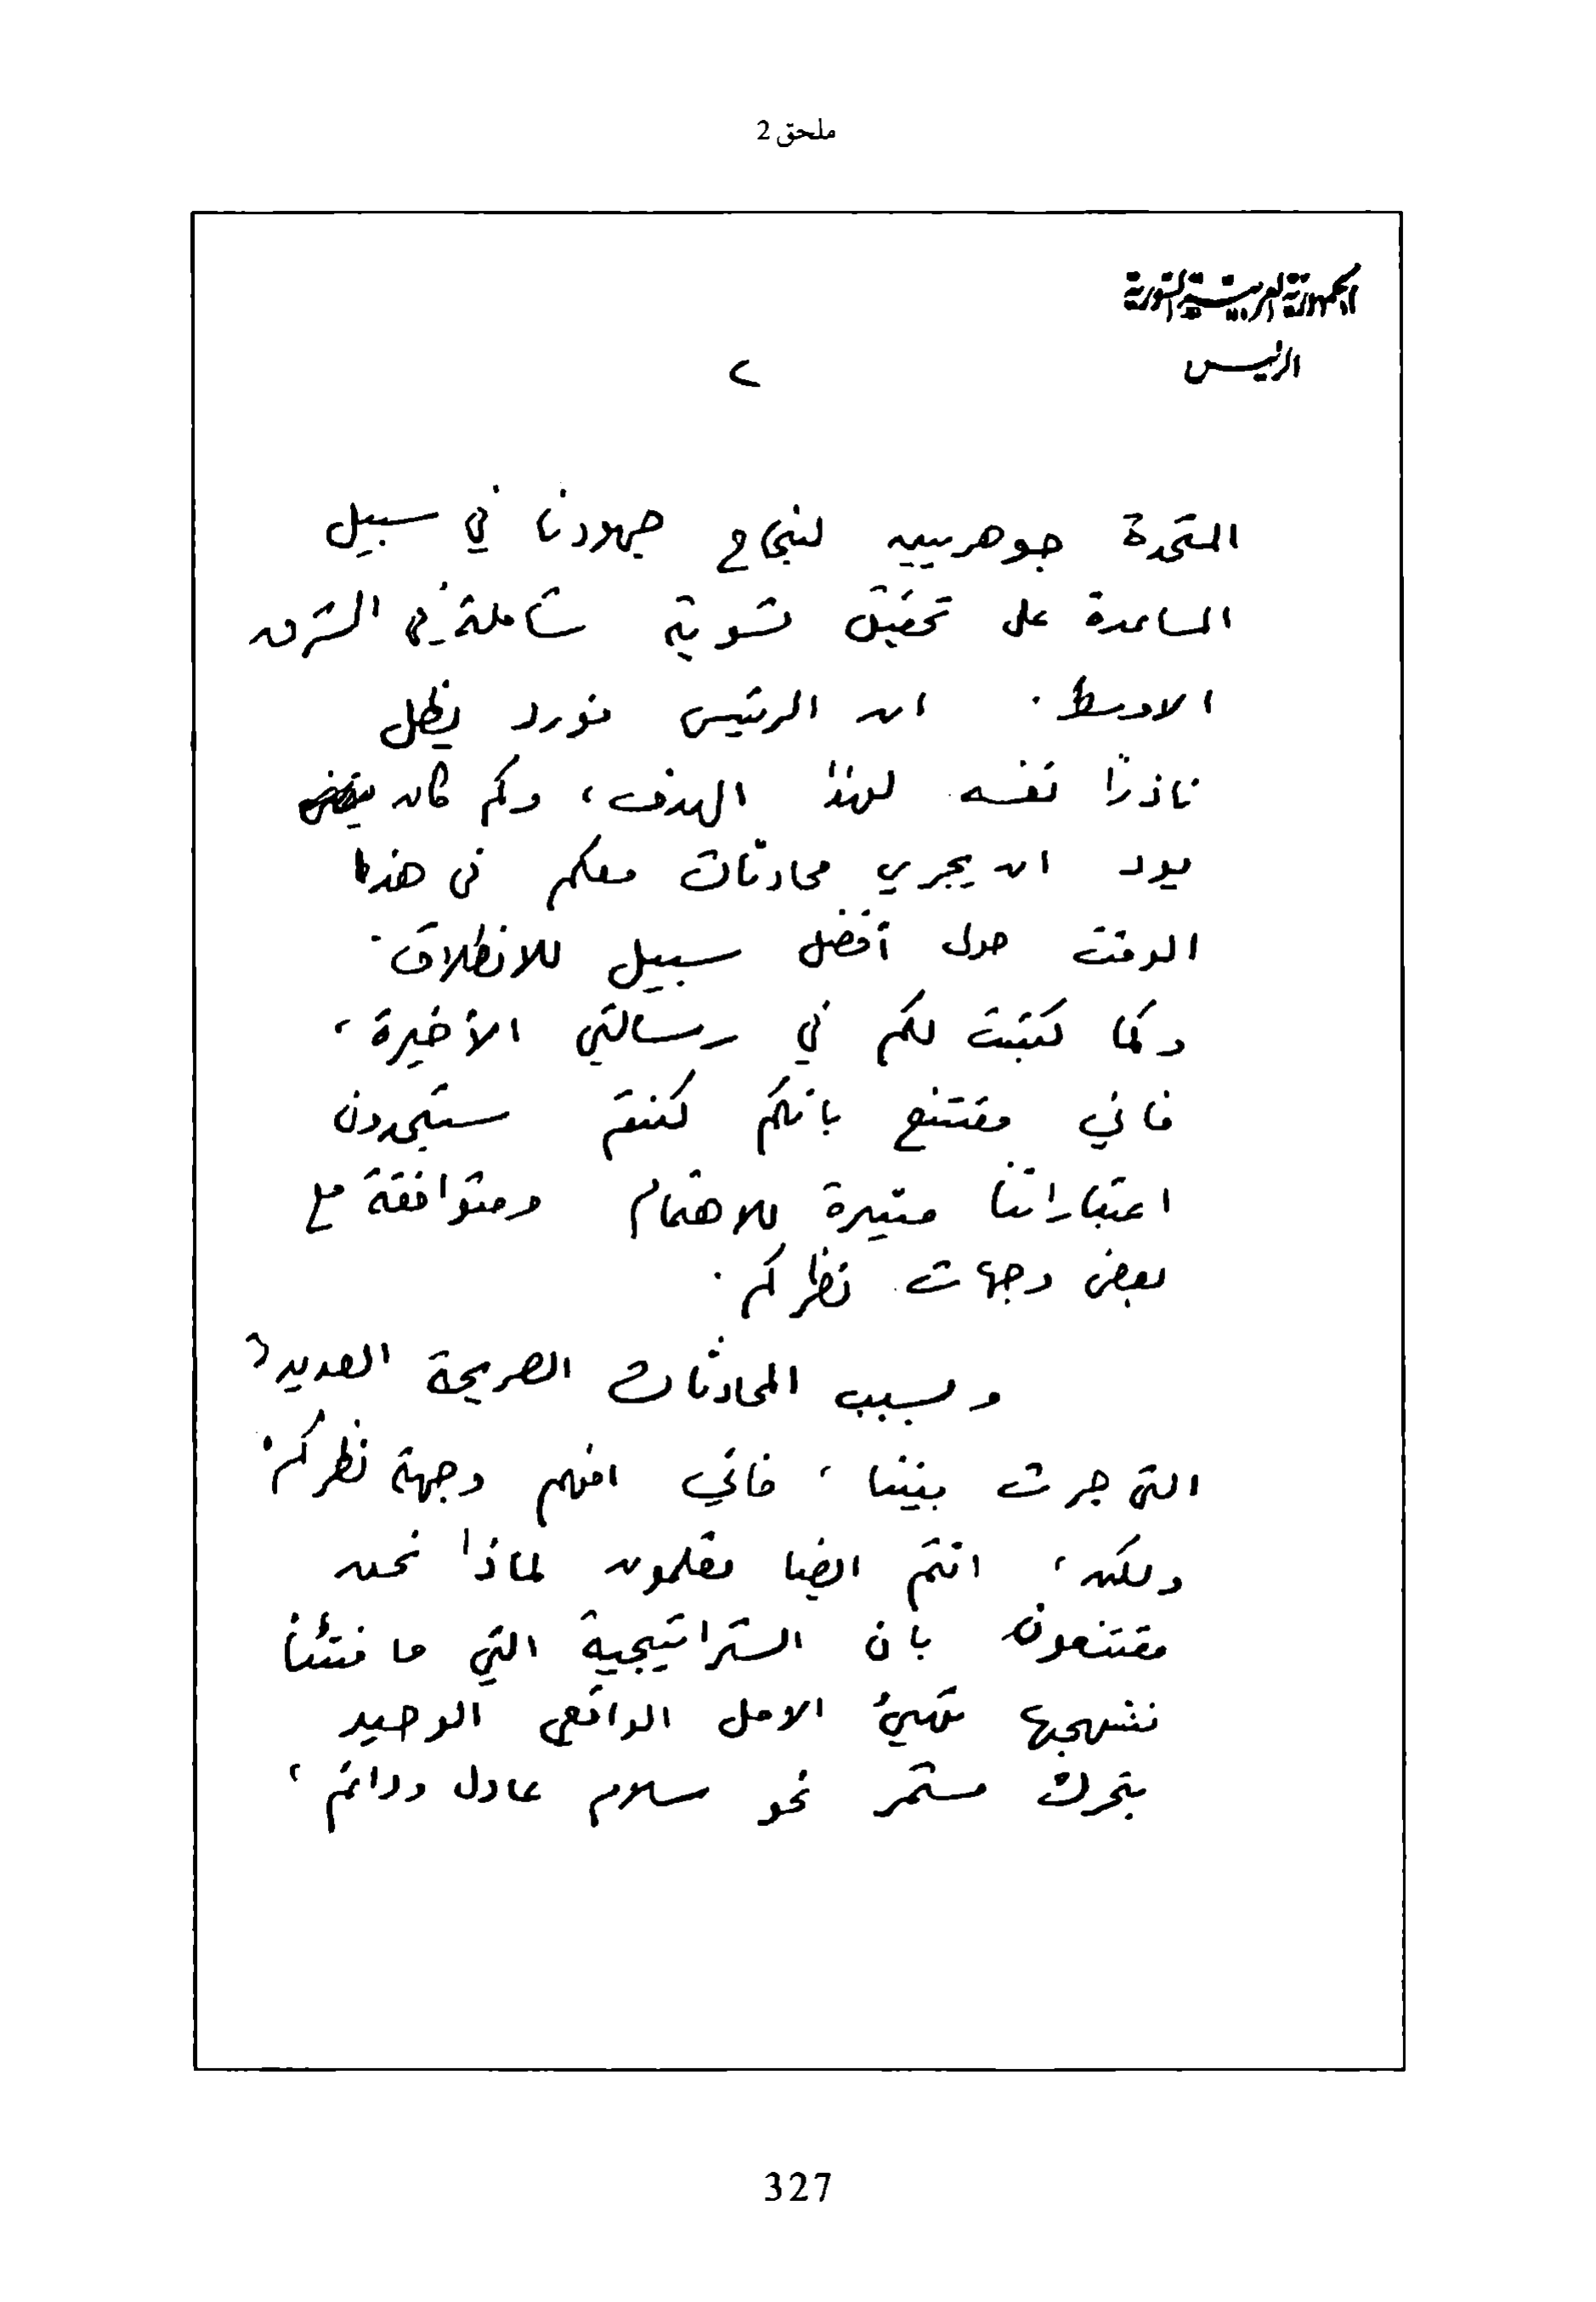 ملحق 2
الجمهورية العربية السورية
الرئيس
٢
المتحدة جوهريين لنجاح جهودنا في سبيل
المساعدة على تحقيق تسوية شاملة في الشرق
الاوسط . ان الرئيس فورد يظل
ناذراً نفسه لهذا الهدف ، وكم كان
يود ان يجري محادثات معكم في هذا
الوقت حول أفضل سبيل للانطلاق .
وكما كتبت لكم في رسالتي الأخيرة ،
فاني مقتنع بانكم كنتم ستجدون
اعتباراتنا مثيرة للاهتمام ومتوافقة مع
بعض وجهات نظركم .
وبسبب المحادثات الصريحة العديدة
التي جرت بيننا ، فاني افهم وجهة نظركم .
ولكن ، انتم ايضا تعلمون لماذا نحن
مقتنعون بان الستراتيجية التي ما فتئنا
ننتهجها تهيئ الامل الواقعي الوحيد
بتحرك مستمر نحو سلام عادل ودائم ،
327